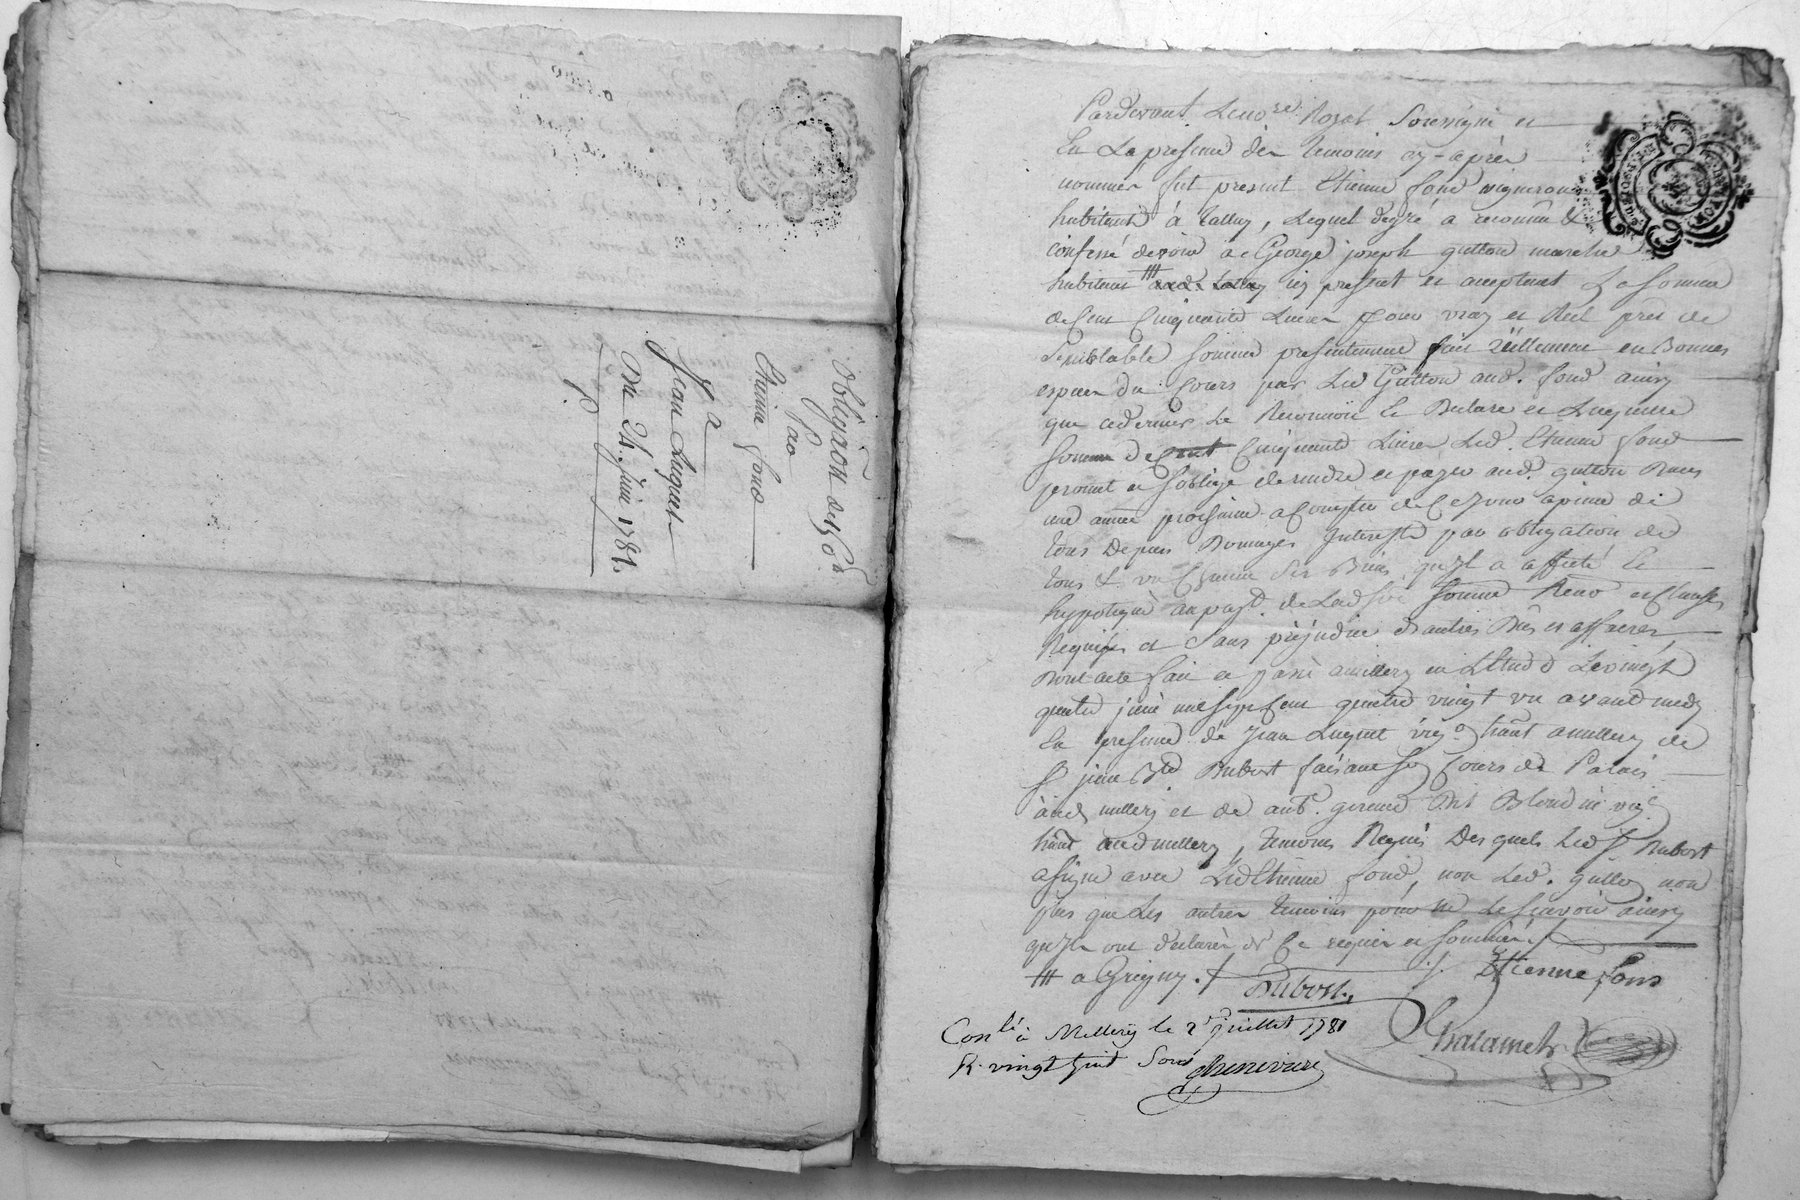 Obligaon de 150 #
Par
Etienne fond
a
Jean Luquet
Du 24. juin 1781.
Pardevant Le no.re Royal Soussigné et
En La presence des temoins cy-après
nommés fut present Etienne fond vigneron
habitant à talluy, Lequel degré a reconnu &
confessé devoir a George joseph guttou marchd
habitant icy present et acceptant La somme
de Cent Cinquante Livres pour vray et Réel prest de
Semblable somme presentement fait réellement en Bonnes
espèces du Cours par Led Guttou aud. fond ainsy
que ce dernier Le Reconnoit Le Declare et Laquelle
somme de Cent Cinquante Livres Led. Etienne fond
promet et soblige de rendre et payer aud. guttou Dans
une année prochaine a compter de Ce jour a peine de
tous Depens Domages Interests par obligation de
tous & un Chacun Ses Biens, qu'il a affecté &
hypotequé au payt. de Lad somme Renon et Clauses
Requises et Sans préjudice d'autres Dûs et affaires,
Dont acte fait et passé a millery en L'Etude Le vingt
quatre juin mil sept cent quatre vingt un avant midy
En presence de Jean Luquet vig.on habt a millery de
Sr Dubost faisant Son Cours de Palais
à aud millery et de vig.
habt aud millery, temoins Requis Desquels Led Sr Dubost
a signé avec Led Etienne fond, non Led. guttou non
plus que Les autres temoins pour ne Le scavoir ainsy
qu'ils ont declarés de Ce requis et sommés ./.
a Grigny ./. Etienne fons
Dubost.
Conlé à Millery le 2 juillet 1781
R. vingt huit Sous